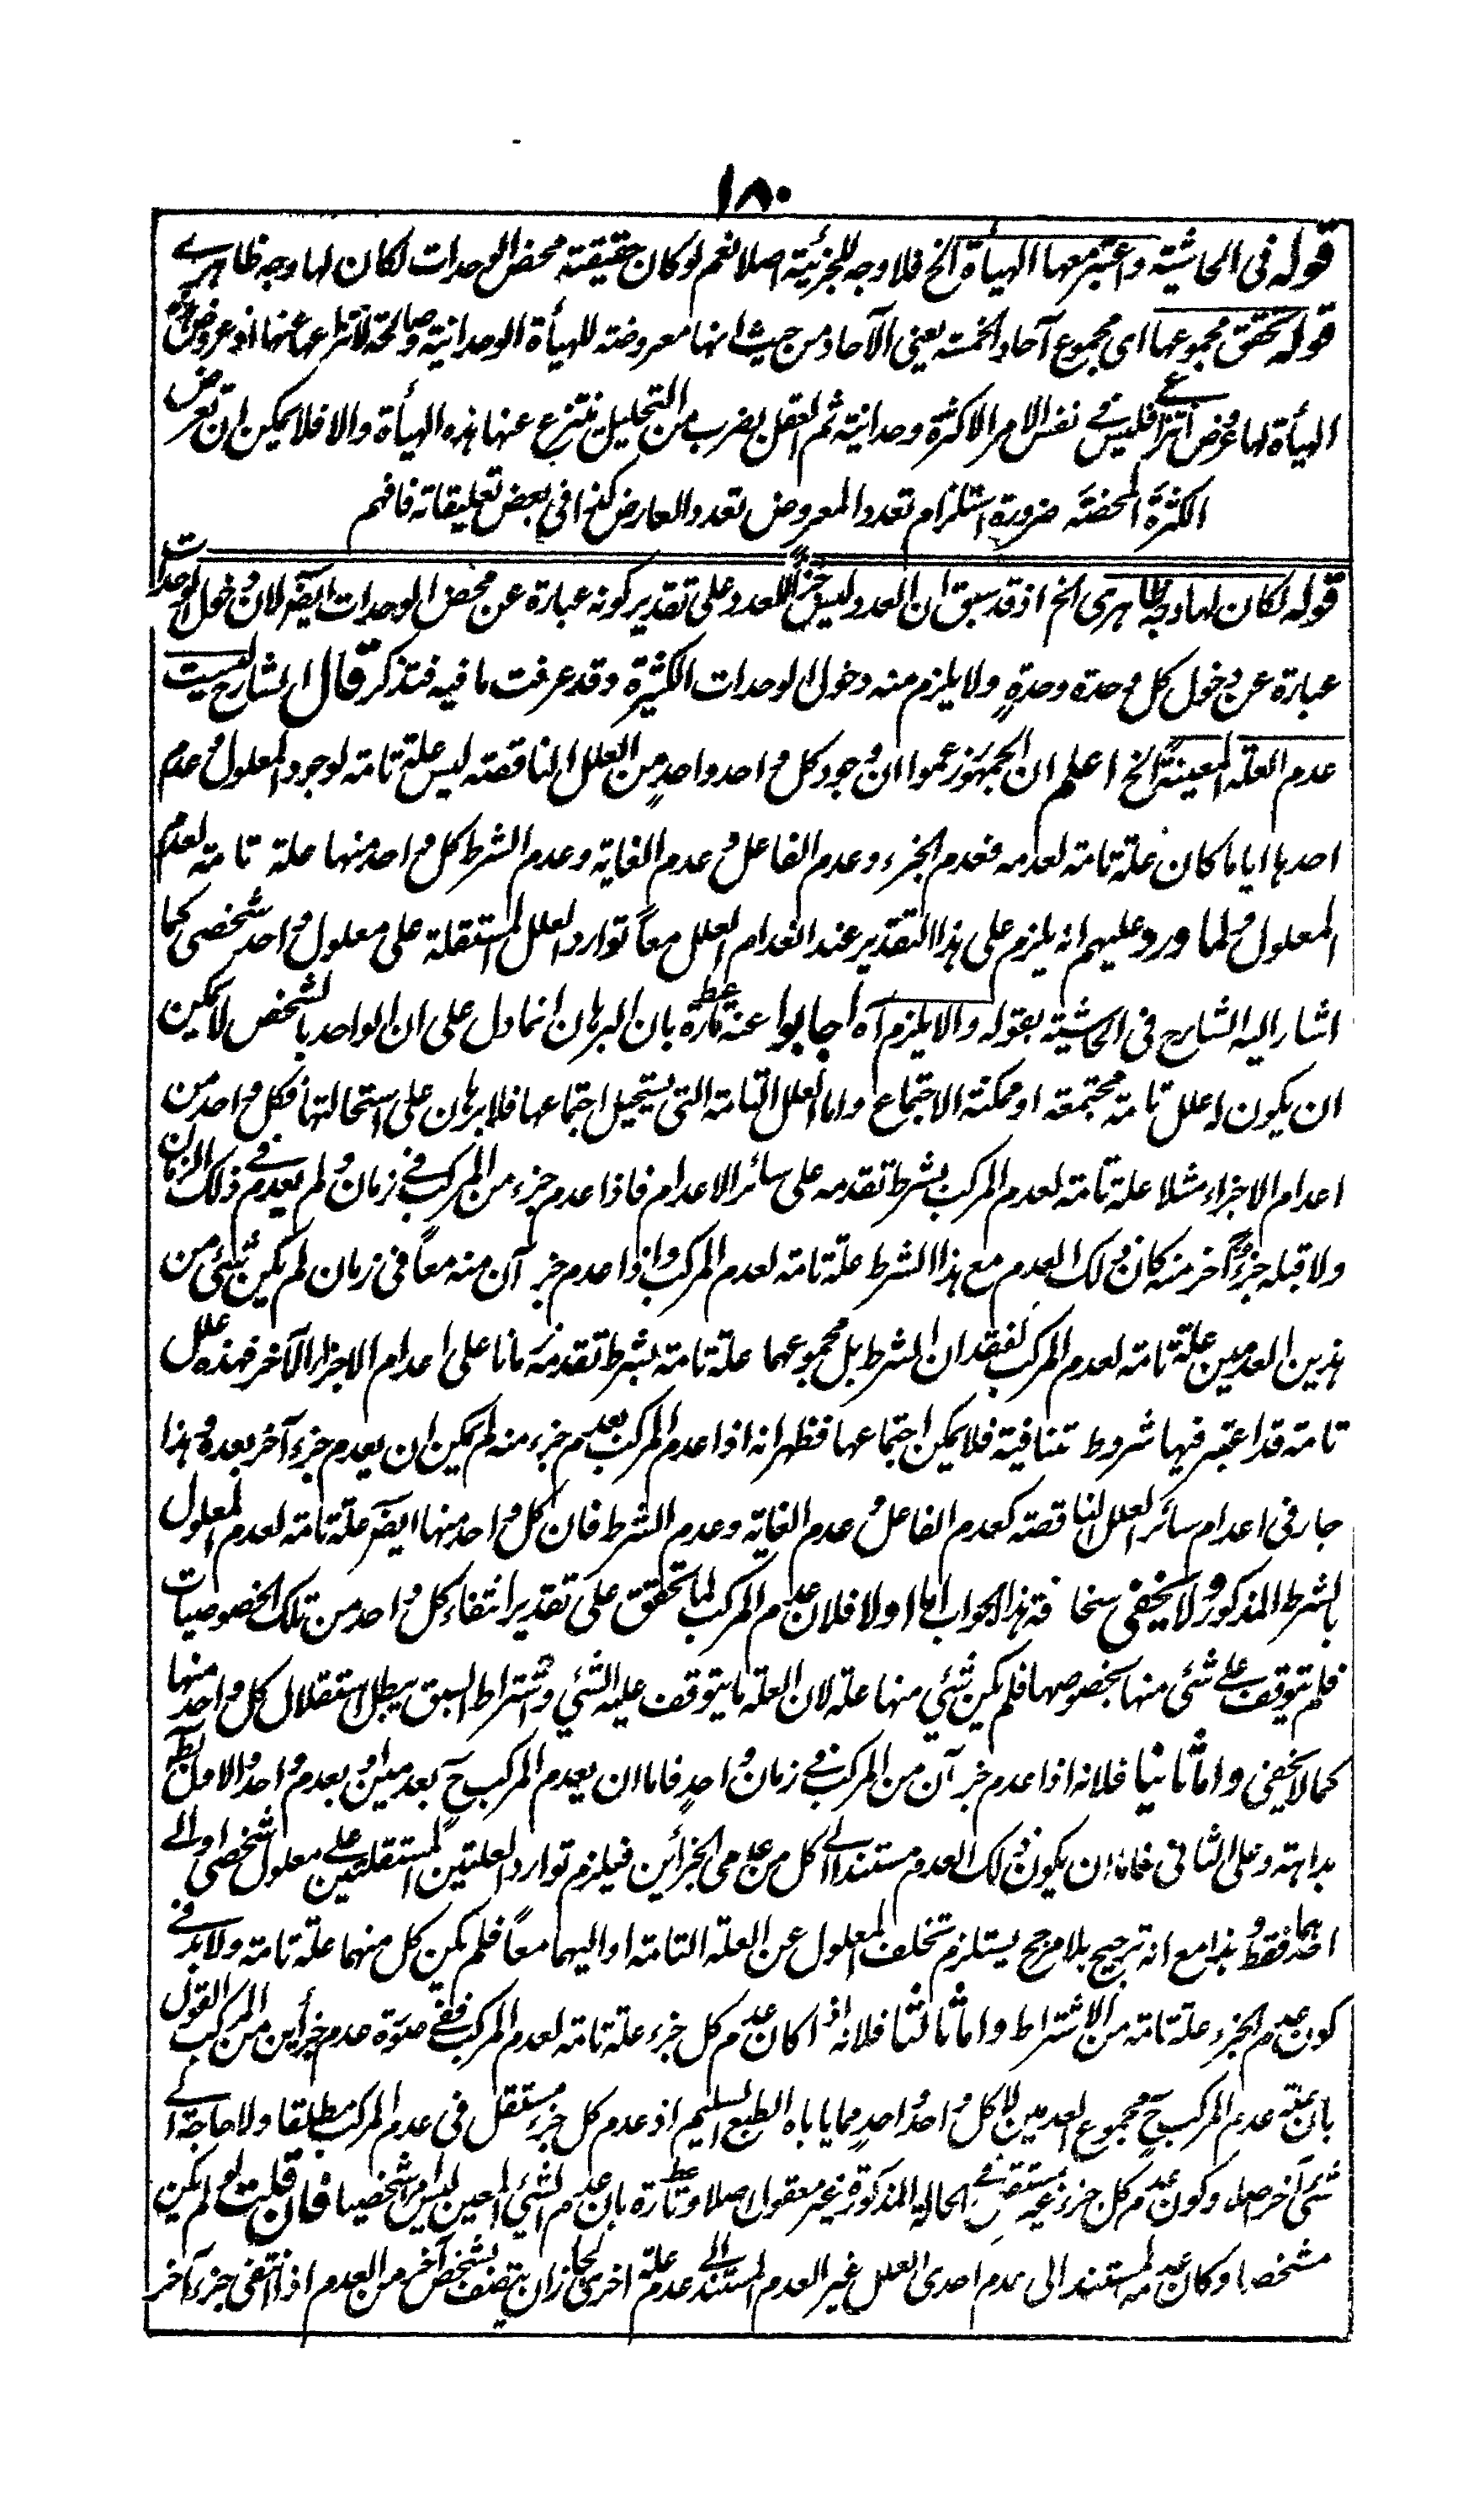 ١٨٠
قوله في الحاشية واعتبر معها الهيأة الخ فلا وجه للجزئية اصلا نعم لو كان حقيقته محض الوحدات لكان لها وجه ظاهري
قوله تحقق مجموعها اى مجموع آحاد الخمسة يعنى الآحاد من حيث انها معروضة للهيأة الوحدانية وصالحة لانتزاعها عنها اذ عروض
الهيأة لها عروض انتزاعي فليس في نفس الامر الا كثرة وحدانية ثم العقل بضرب من التحليل ينتزع عنها هذه الهيأة والا فلا يمكن ان تعرض
الكثرة المحضة ضرورة استلزام تعدد المعروض تعدد العارض كذا في بعض تعليقاته فافهم
قوله لكان لها وجه ظاهرى الخ اذ قد سبق ان العدد ليس جزءًا للعدد على تقدير كونه عبارة عن محض الوحدات ايضً لان دخول الوحدات
عبارة عن دخول كل وحدة وحدةٍ ولا يلزم منه دخول الوحدات الكثيرة وقد عرفت ما فيه فتذكر قال الشارح ليست
عدم العلة المعينة الخ اعلم ان الجمهور زعموا ان وجود كل واحد واحدٍ من العلل الناقصة ليس علة تامة لوجود المعلول وعدم
احدها ايا ما كان علة تامة لعدمه فعدم الجزء وعدم الفاعل وعدم الغاية وعدم الشرط كل واحد منها علة تامة لعدم
المعلول ولما ورد عليهم انه يلزم على هذا التقدير عند انعدام العلل معاً توارد العلل المستقلة على معلول واحد شخصى كما
اشار اليه الشارح في الحاشية بقوله والا يلزم آه اجابوا عنه تارة بان البرهان انما دل على ان الواحد بالشخص لا يمكن
ان يكون له علل تامة مجتمعة او ممكنة الاجتماع واما العلل التامة التى يستحيل اجتماعها فلا برهان على استحالتها فكل واحد من
اعدام الاجزاء مثلا علة تامة لعدم المركب بشرط تقدمه على سائر الاعدام فاذا عدم جزء من المركب في زمان ولم يعدم في ذلك الزمان
ولا قبله جزء آخر منه كان ذلك العدم مع هذا الشرط علة تامة لعدم المركب واذا عدم جزآن منه معاً في زمان لم يكن شئ من
هذين العدمين علة تامة لعدم المركب لفقدان الشرط بل مجموعهما علة تامة بشرط تقدمه زمانا على اعدام الاجزاء الآخر فهذه علل
تامة قد اعتبر فيها شروط متنافية فلا يمكن اجتماعها فظهر انه اذا عدم المركب بعدم جزء منه لم يمكن ان يعدم جزء آخر بعده وهذا
جار في اعدام سائر العلل الناقصة كعدم الفاعل وعدم الغاية وعدم الشرط فان كل واحد منها ايضً علة تامة لعدم المعلول
بالشرط المذكور ولا يخفى سخافة هذا الجواب اما اولا فلان عدم المركب لما تحقق على تقدير انتفاء كل واحد من تلك الخصوصيات
فلم يتوقف على شئ منها بخصوصها فلم يكن شئ منها علة لان العلة ما يتوقف عليه الشئ واشتراط السبق يبطل استقلال كل واحد منها
كما لا يخفى واما ثانيا فلانه اذا عدم جزآن من المركب في زمان واحدٍ فاما ان يعدم المركب ح بعدمين او بعدم واحد والاول بط
بداهة وعلى الثاني فاما ان يكون ذلك العدم مستندا الى كل من عدمى الجزأين فيلزم توارد العلتين المستقلتين على معلول شخصى او الى
احدهما فقط وهذا مع انه ترجيح بلا مرجح يستلزم تخلف المعلول عن العلة التامة او اليهما معاً فلم يكن كل منهما علة تامة ولا بد في
كون عدم الجزء علة تامة من الاشتراط واما ثالثا فلانه اذا كان عدم كل جزء علة تامة لعدم المركب ففي صورة عدم جزأين من المركب القول
بان علة عدم المركب ح مجموع العدمين لا كل واحد واحدٍ مما ياباه الطبع السليم اذ عدم كل جزء مستقل في عدم المركب مطلقا ولا حاجة الى
شئ آخر اصلا وكون عدم كل جزء غير مستقل في الحالة المذكورة غير معقول اصلا وتارة بان عدم الشئ المعين ليس امرا شخصيا فان قلت لو لم يكن
مشخصا وكان عدمه المستند الى عدم احدى العلل غير العدم المستند الى عدم علة اخرى لجاز ان يتصف بشخص آخر من العدم اذا انتفى جزء آخر